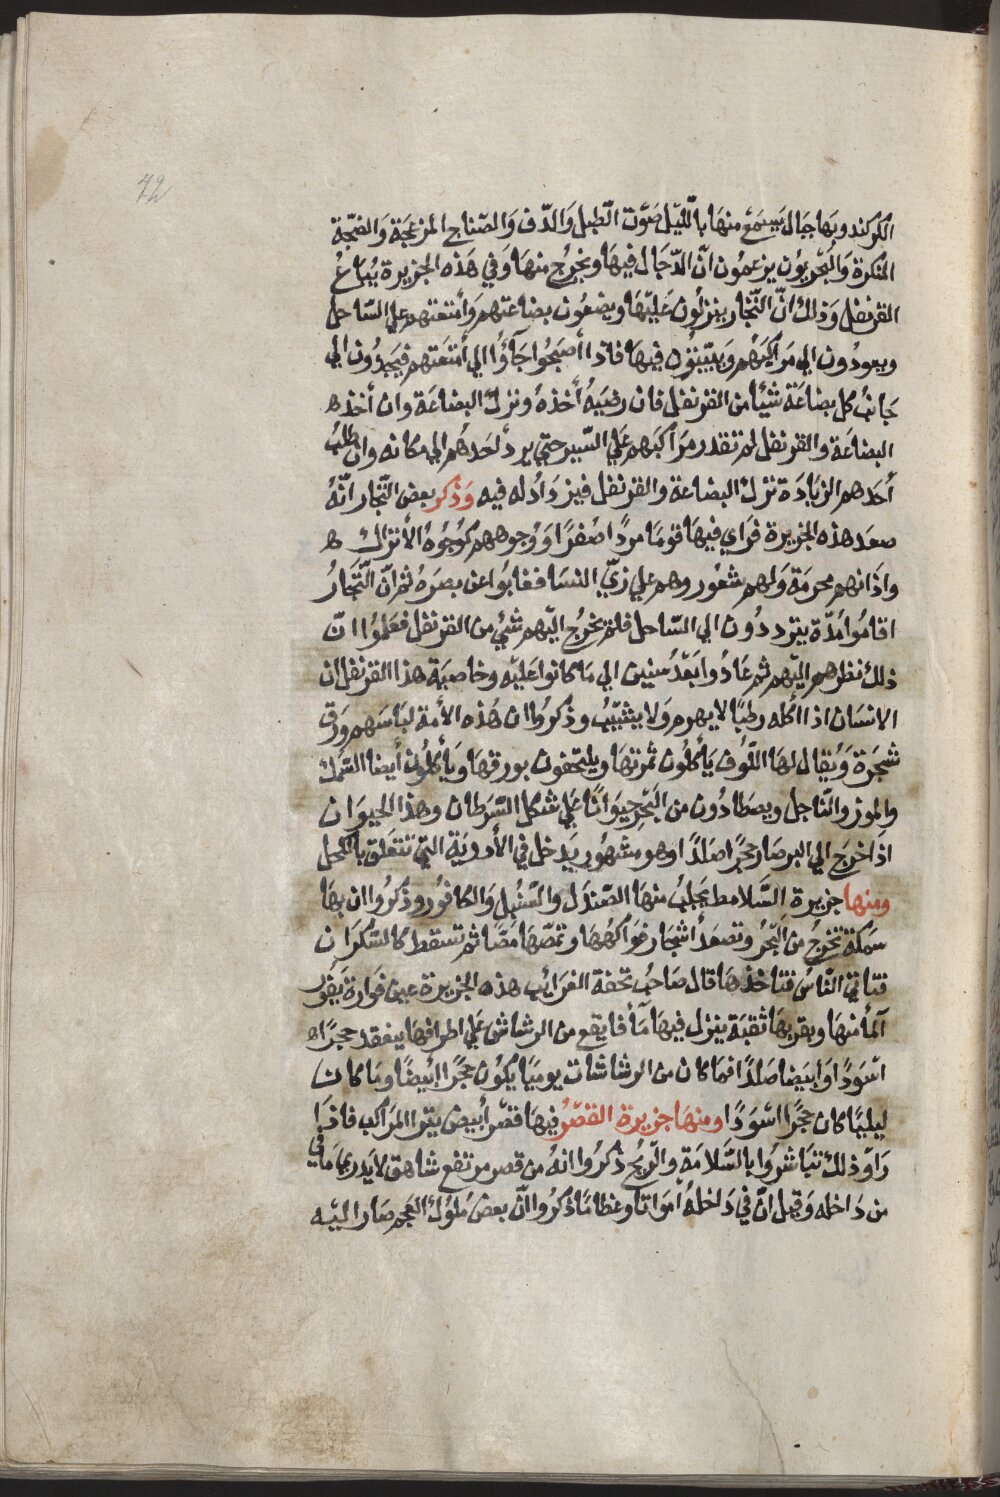 42
الكركند وبها جبال يسمع منها بالليل صوت الطبل والدف والصناج المزعجة والضجة
المنكرة والبحريون يزعمون ان الدجال فيها ويخرج منها وفي هذه الجزيرة يباع
القرنفل وذلك ان التجار ينزلون عليها ويضعون بضاعتهم وأمتعتهم على الساحل
ويعودون الي مراكبهم ويبيتون فيها فاذا أصبحوا جاؤا الي أمتعتهم فيجدون الي
جانب كل بضاعة شيأ من القرنفل فان رضيه أخذه وترك البضاعة وان أخذ
البضاعة والقرنفل لم تقدر مراكبهم على السير حتي يرد أحدهم الي مكانه وان طلب
أحدهم الزيادة ترك البضاعة والقرنفل فيزداد له فيه وذكر بعض التجار انه
صعد هذه الجزيرة فراي فيها قوما مردا صفرا ووجوههم كوجوه الأتراك
واذانهم مخرمة ولهم شعور وهم على زي النسا فغابوا عن بصره ثم ان التجار
اقاموا مدة يترددون الي الساحل فلم يخرج اليهم شئ من القرنفل فعلموا ان
ذلك نظرهم اليهم ثم عادوا بعد سنين الي ما كانوا عليه وخاصية هذا القرنفل ان
الانسان اذا اكله رطبا لا يهرم ولا يشيب وذكروا ان هذه الأمة لباسهم ورق
شجرة ويقال لها اللوف يأكلون ثمرتها ويلتحفون بورقها ويأكلون أيضا السمك
والموز والنارجل ويصطادون من البحر حيوانا على شكل السرطان وهذا الحيوان
اذا خرج الي البر صار حجرا صلدا وهو مشهور يدخل في الأدوية التي تتعلق بالكحل
ومنها جزيرة السلامط يجلب منها الصندل والسنبل والكافور وذكروا ان بها
سمكة تخرج من البحر وتصعد أشجار فواكهها وتمصها مصا ثم تسقط كالسكران
فتاتي الناس فتاخذها قال صاحب تحفة الغرايب هذه الجزيرة عين فوارة يفور
ألمأ منها وبقربها ثقبة ينزل فيها مآ فا يقع من الرشاش على اطرافها ينعقد حجرا
اسودا او ابيضا صلدا فما كان من الرشاشات يوميا يكون حجرا ابيضا وما كان
ليليا كان حجرا اسودا ومنها جزيرة القصر فيها قصر أبيض يتراا المراكب فاذا
راو ذلك تباشروا بالسلامة والربح ذكروا انه من قصر مرتفع شاهق لا يدري ما في
من داخله وقيل ان في داخله امواتا وعظاما ذكروا ان بعض ملوك العجم صار اليه